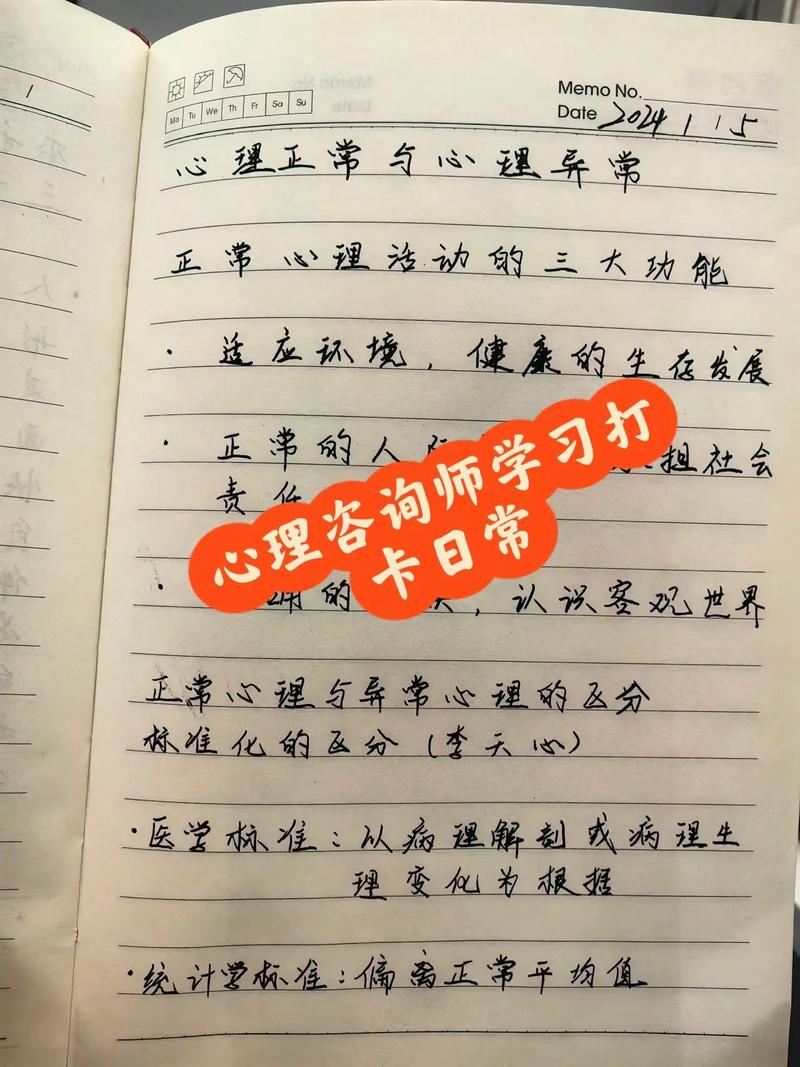 Memo No.
Date 2024 1 15
Mo Tu We Th Fr Sa Su
心理正常与心理异常
正常心理活动的三大功能
· 适应环境，健康的生存发展
· 正常的人际 担社会
责任
· 的 ，认识客观世界
心理咨询师学习打
卡日常
正常心理与异常心理的区分
标准化的区分（李天心）
· 医学标准：以病理解剖或病理生
理变化为根据
· 统计学标准：偏离正常平均值